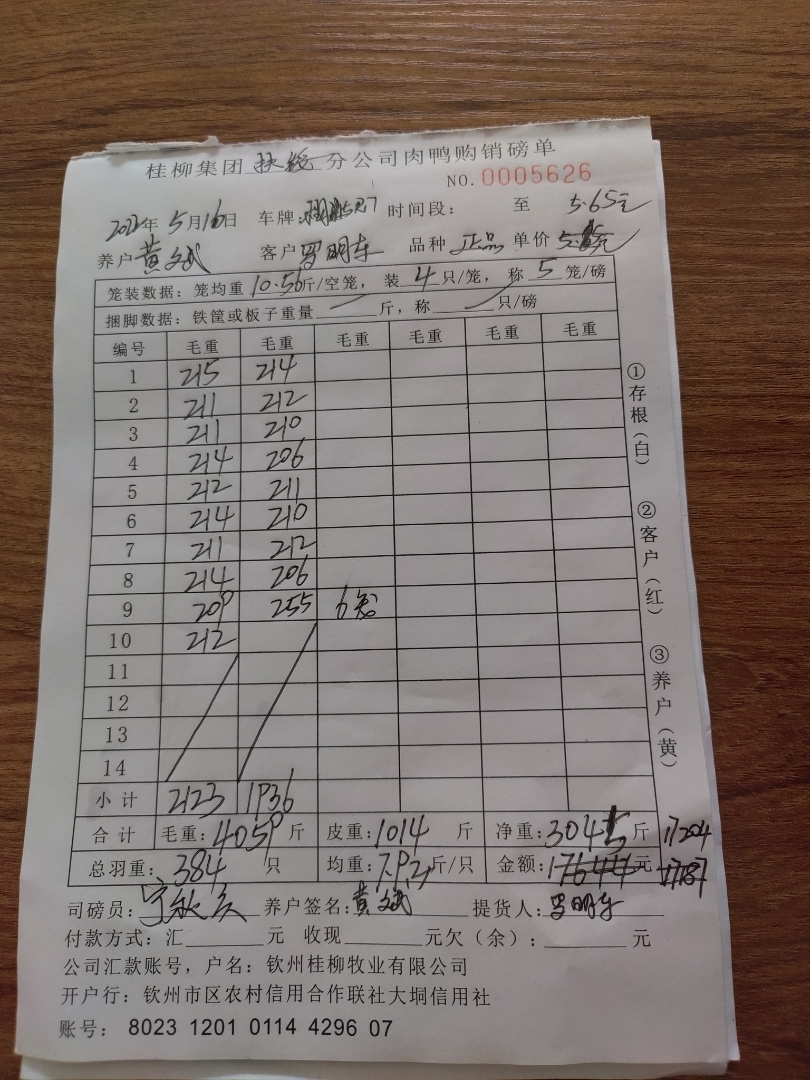 桂柳集团 扶绥 分公司肉鸭购销磅单
NO. 0005626
2022年 5月16日 车牌: 时间段: 至 5.65元
养户 黄文斌 客户 罗明东 品种 正品 单价
笼装数据: 笼均重 10.56斤/空笼, 装 4 只/笼, 称 5 笼/磅
捆脚数据: 铁筐或板子重量 斤, 称 只/磅
编号 毛重 毛重 毛重 毛重 毛重
1 215 214
2 211 212
3 211 210
4 214 206
5 212 211
6 214 210
7 211 212
8 214 206
9 209 255 6笼
10 212
11
12
13
14
小计 2123 1936
合计 毛重: 4059 斤 皮重: 1014 斤 净重: 3045 斤 17204
总羽重: 384 只 均重: 7.92 斤/只 金额: 17644 元 17187
司磅员: 养户签名: 黄文斌 提货人: 罗明东
付款方式: 汇 元 收现 元欠(余): 元
公司汇款账号, 户名: 钦州桂柳牧业有限公司
开户行: 钦州市区农村信用合作联社大垌信用社
账号: 8023 1201 0114 4296 07
①存根(白)
②客户(红)
③养户(黄)